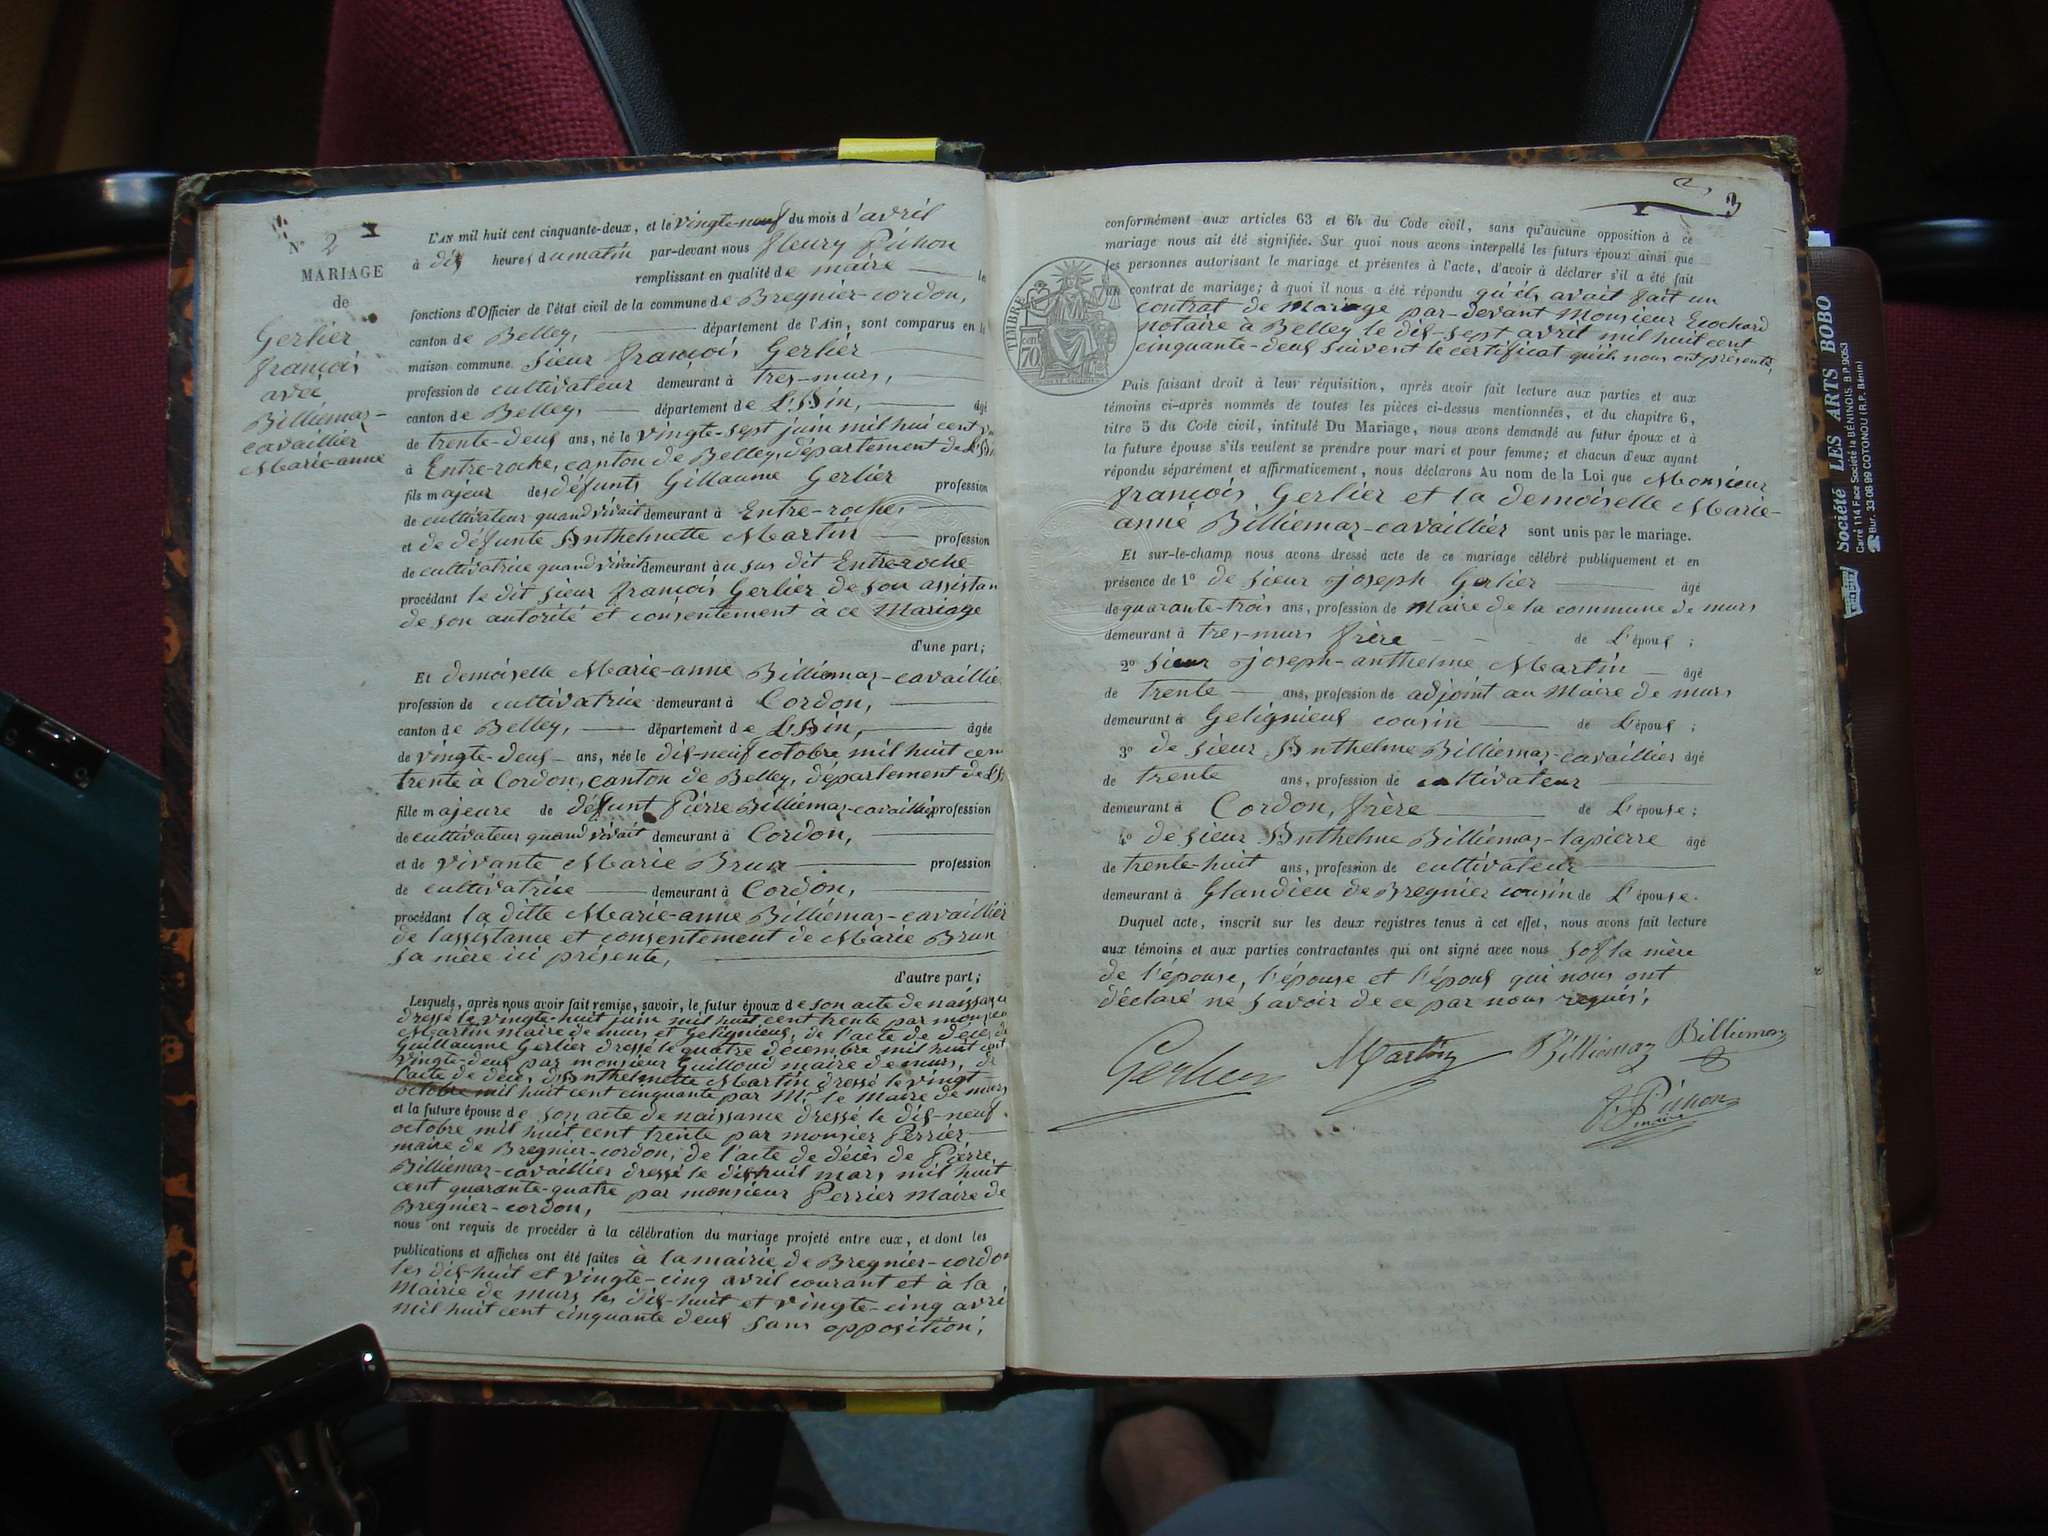 N° 2
MARIAGE
de
Gerlier
françois
avec
Billiemaz-
cavaillier
Marie-anne
L'AN mil huit cent cinquante-deux, et le vingte-neuf du mois d'avril
à dix heures du matin par-devant nous fleury Pichon
remplissant en qualité de maire le
fonctions d'Officier de l'état civil de la commune de Bregnier-cordon,
canton de Belley, département de l'Ain, sont comparus en la
maison commune Sieur françois Gerlier
profession de cultivateur demeurant à tres-murs,
canton de Belley, département de L'Ain, âgé
de trente-deux ans, né le vingte-sept juin mil hui cent
à Entre-roche, canton de Belley, département de L'Ain
fils majeur des défunts Gillaume Gerlier profession
de cultivateur quand vivait demeurant à Entre-roche,
et de défunte Anthelmette Martin profession
de cultivatrice quand vivait demeurant au sus dit Entre-roche
procédant le dit sieur françois Gerlier de son assistan
de son autorité et consentement à ce Mariage
d'une part;
Et demoiselle Marie-anne Billiemaz-cavaillie
profession de cultivatrice demeurant à Cordon,
canton de Belley, département de L'Ain, âgée
de vingte-deux ans, née le dix-neuf octobre mil huit cen
trente à Cordon, canton de Belley, département de L'A
fille majeure de défunt Pierre Billiemaz-cavaillié profession
de cultivateur quand vivait demeurant à Cordon,
et de vivante Marie Brun profession
de cultivatrice demeurant à Cordon,
procédant la ditte Marie-anne Billiemaz-cavaillier
de l'assistance et consentement de Marie Brun
sa mère ici présente,
d'autre part;
Lesquels, après nous avoir fait remise, savoir, le futur époux de son acte de naissance
dressé le vingte-huit juin mil huit cent trente par monsieur
Martin maire de murs et Gelignieux, de l'acte de décès de
Guillaume Gerlier dressé le quatre décembre mil huit cent
vingte-deux par monsieur Guilloud maire de murs, de
l'acte de décès d'Anthelmette Martin dressé le vingt
octobre mil huit cent cinquante par Mr le Maire de murs
et la future épouse de son acte de naissance dressé le dix-neuf
octobre mil huit cent trente par monsier Perrier
maire de Bregnier-cordon, de l'acte de décès de Pierre
Billiemaz-cavaillier dressé le dix-huit mars mil huit
cent quarante-quatre par monsieur Perrier Maire de
Bregnier-cordon,
nous ont requis de procéder à la célébration du mariage projeté entre eux, et dont les
publications et affiches ont été faites à la mairie de Bregnier-cordon
les dix-huit et vingte-cinq avril courant et à la
Mairie de murs les dix-huit et vingte-cinq avri
mil huit cent cinquante deux sans opposition;
3
conformément aux articles 63 et 64 du Code civil, sans qu'aucune opposition à ce
mariage nous ait été signifiée. Sur quoi nous avons interpellé les futurs époux ainsi que
les personnes autorisant le mariage et présentes à l'acte, d'avoir à déclarer s'il a été fait
un contrat de mariage; à quoi il nous a été répondu qu'ils avait fait un
contrat de Mariage par-devant Monsieur Ecochard
notaire à Belley le dix-sept avril mil huit cent
cinquante-deux suivent le certificat qu'ils nous ont présenté,
TIMBRE
70
Puis faisant droit à leur réquisition, après avoir fait lecture aux parties et aux
témoins ci-après nommés de toutes les pièces ci-dessus mentionnées, et du chapitre 6,
titre 5 du Code civil, intitulé Du Mariage, nous avons demandé au futur époux et à
la future épouse s'ils veulent se prendre pour mari et pour femme; et chacun d'eux ayant
répondu séparément et affirmativement, nous déclarons Au nom de la Loi que Monsieur
françois Gerlier et la demoiselle Marie-
anne Billiemaz-cavaillier sont unis par le mariage.
Et sur-le-champ nous avons dressé acte de ce mariage célébré publiquement et en
présence de 1° de Sieur joseph Gerlier âgé
de quarante-trois ans, profession de Maire de la commune de murs
demeurant à tres-murs frère de L'époux;
2° Sieur joseph-anthelme Martin âgé
de trente ans, profession de adjoint au Maire de murs
demeurant à Gelignieux cousin de L'époux;
3° de sieur Anthelme Billiemaz-cavaillier âgé
de trente ans, profession de cultivateur
demeurant à Cordon, frère de L'épouse;
4° de sieur Anthelme Billiemaz-lapierre âgé
de trente-huit ans, profession de cultivateur
demeurant à Glandieu de Bregnier cousin de L'épouse.
Duquel acte, inscrit sur les deux registres tenus à cet effet, nous avons fait lecture
aux témoins et aux parties contractantes qui ont signé avec nous sof la mère
de l'épouse, l'épouse et l'époux qui nous ont
déclaré ne savoir de ce par nous requis;
Gerlier Martin Billiemaz Billiemaz
f. Pichon
maire
Société LES ARTS BOBO
Carré 114 Face Société la BÉNINOIS. B.P. 9053
Bur. 33 06 99 COTONOU (R.P. Bénin)